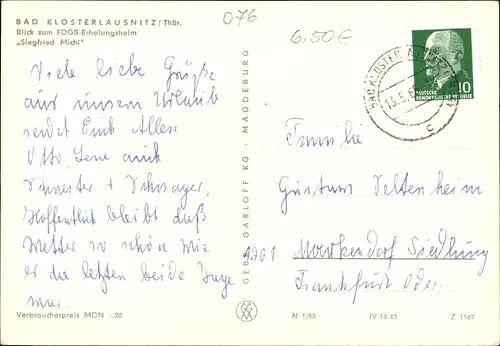 BAD KLOSTERLAUSNITZ/Thür.
Blick zum FDGB-Erholungsheim
„Siegfried Michl"
076
6,50€
Viele liebe Grüße
aus unserm Urlaub
sendet Euch Allen
Otto, Lene auch
Schwester + Schwager.
Hoffentlich bleibt daß
Wetter so schön wie
er die letzten beide Tage
war.
Verbraucherpreis MDN -,20
GEBR. GARLOFF KG · MAGDEBURG
BAD KLOSTER
13.5.
c
10
DEUTSCHE
DEMOKRATISCHE REPUBLIK
Familie
Gustav Veltenheim
1201 Markendorf Siedlung
Frankfurt Oder.
N 1/65 IV-14-45 Z 1167